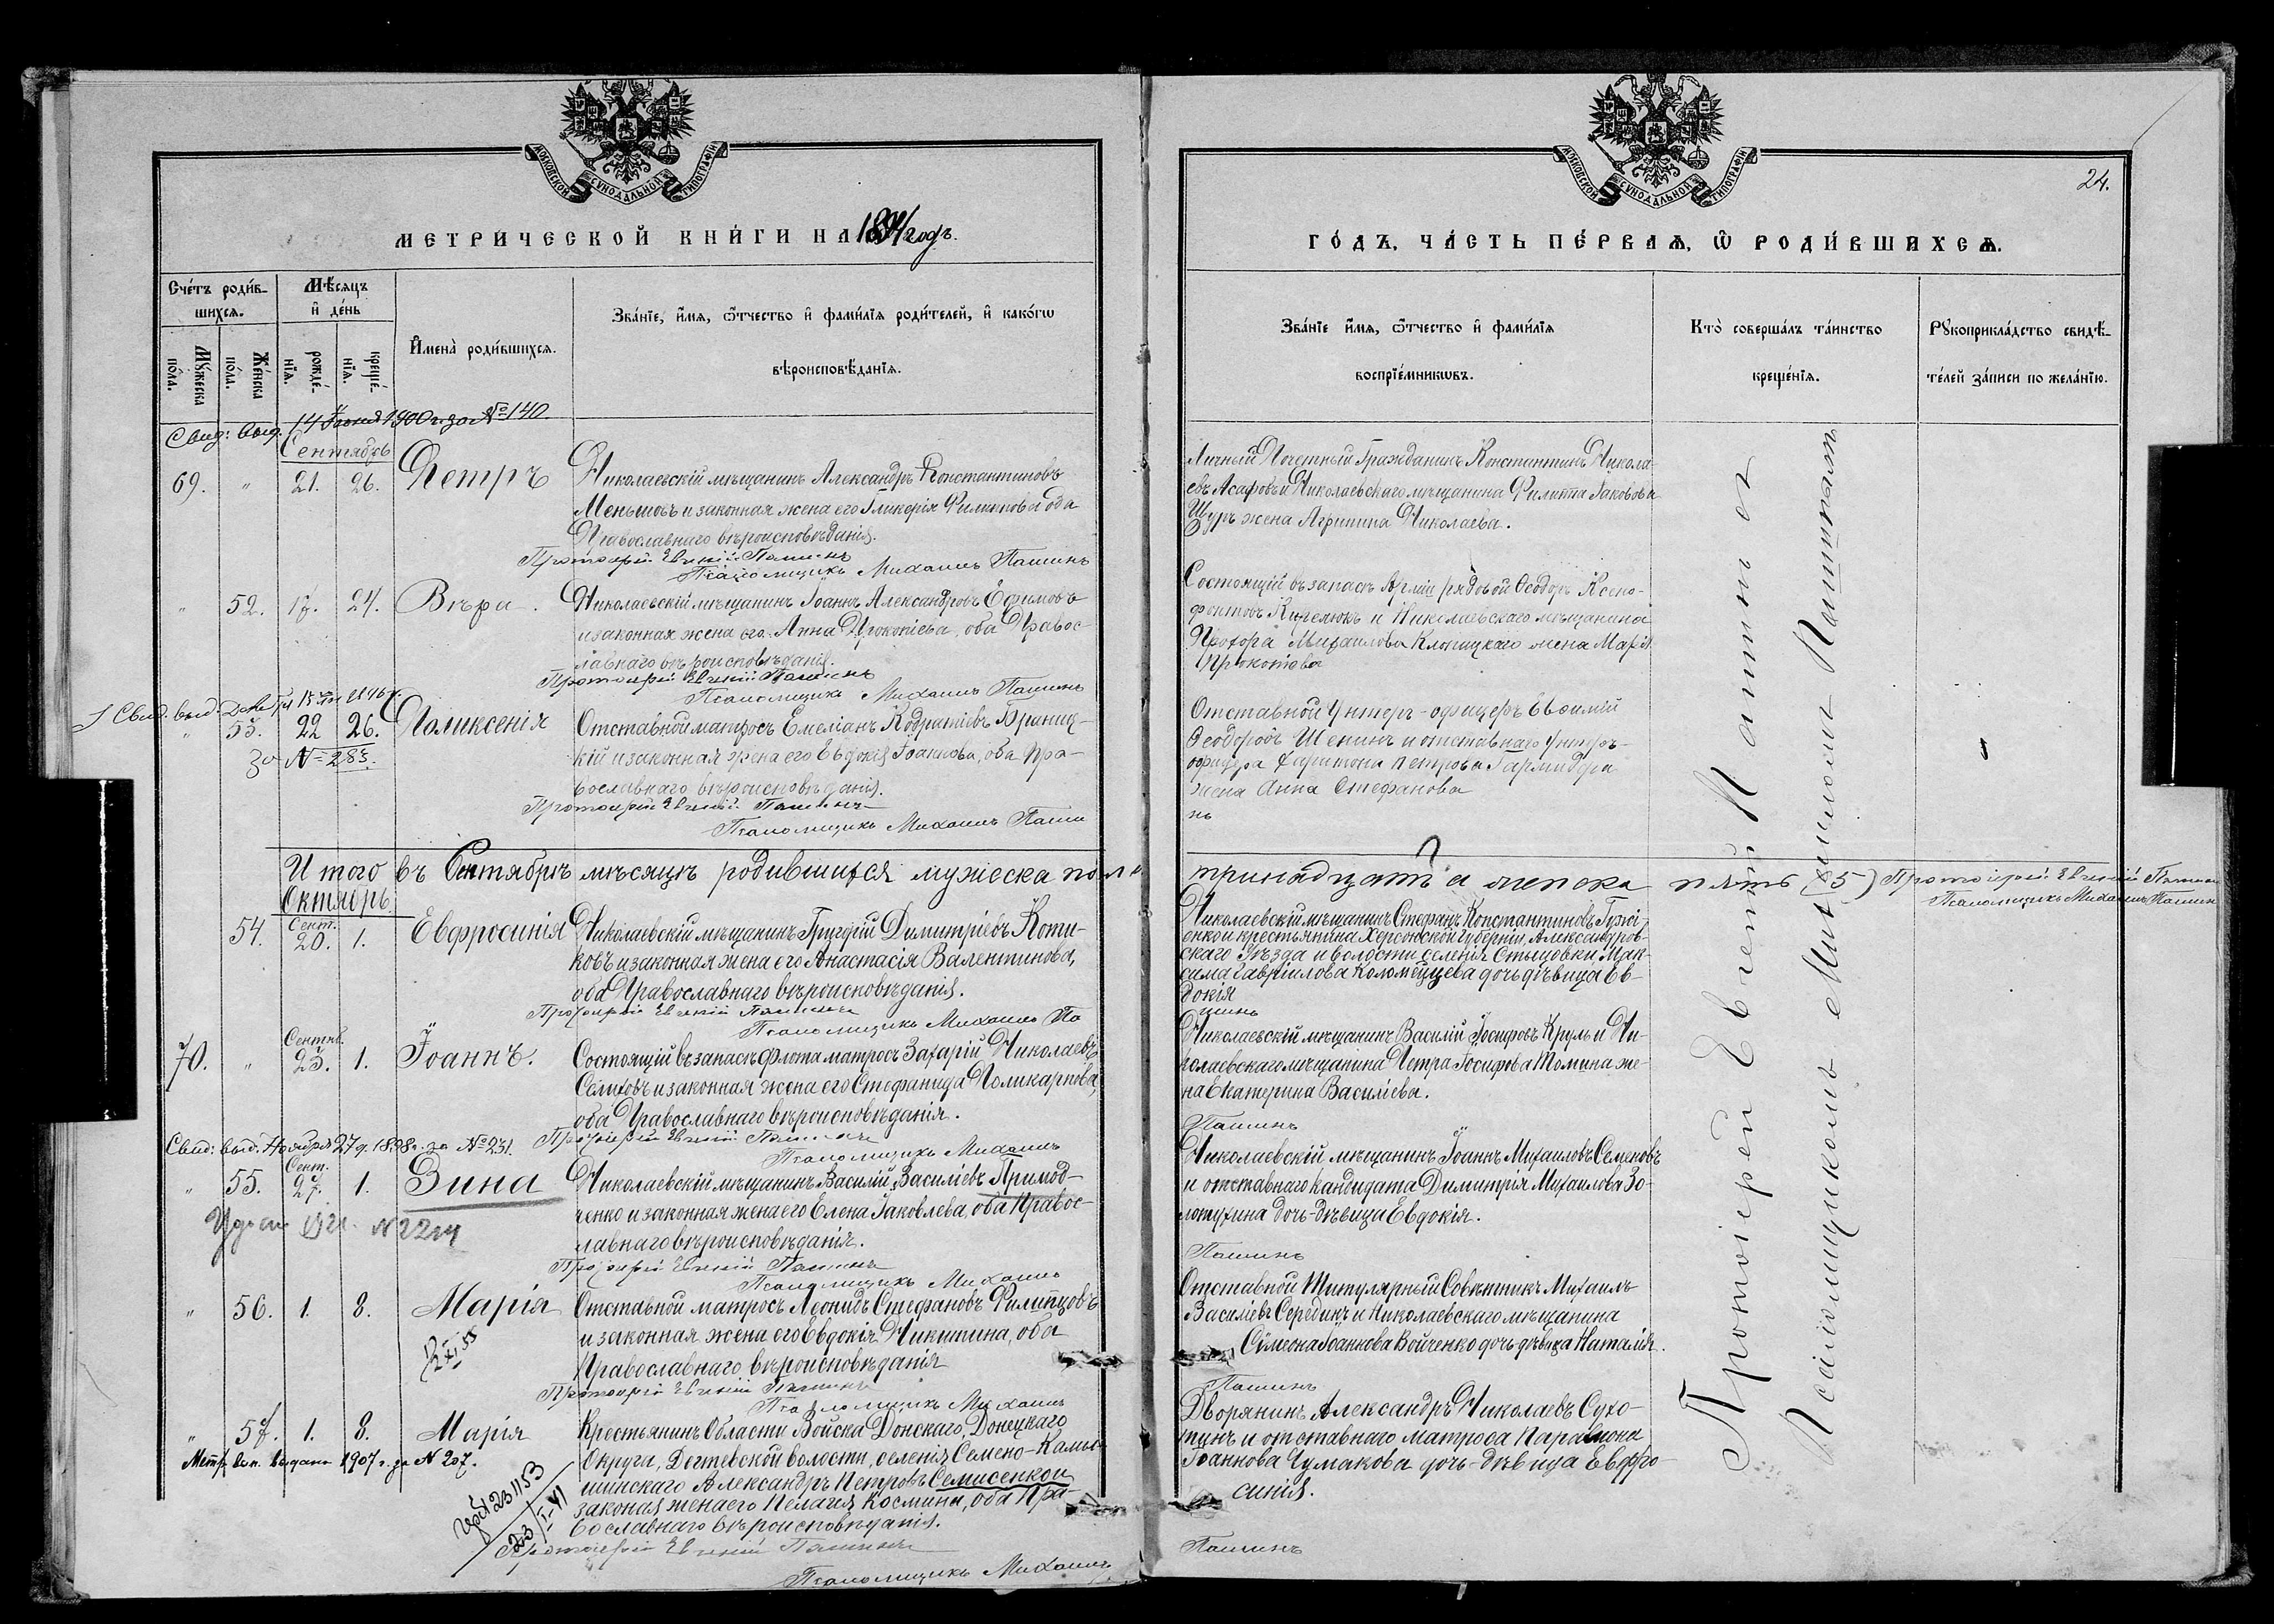 МОСКОВСКОЙ СУНОДАЛЬНОЙ ТИПОГРАФІИ
МЕТРИ́ЧЕСКОЙ КНИ́ГИ НА 1894 годъ.
Сче́тъ роди́в-
шихсѧ.
Мѣ́сѧцъ
и҆ де́нь
Мꙋ́жеска
по́ла.
Же́нска
по́ла.
рожде́-
нїѧ.
креще́-
нїѧ.
И҆мена̀ роди́вшихсѧ.
Зва́нїе, и҆́мѧ, ѻ҆́тчество и҆ фами́лїѧ роди́телей, и҆ како́гѡ
вѣроисповѣ́данїѧ.
Свид: выд. 14 Іюня 1900 г. за № 140.
Сентябрь
69. " 21. 26. Петръ
Николаевскій мѣщанинъ Александръ Константиновъ
Меньшовъ и законная жена его Гликерія Филипова оба
Православнаго вѣроисповѣданія.
Протоіерей Евгеній Пашинъ
Псаломщикъ Михаилъ Пашинъ
" 52. 17. 24. Вѣра.
Николаевскій мѣщанинъ Іоаннъ Александровъ Ефимовъ
и законная жена его Анна Прокопіева, оба Правос-
лавнаго вѣроисповѣданія.
Протоіерей Евгеній Пашинъ
Псаломщикъ Михаилъ Пашинъ
Свид. выд.
" 53. 22 26. Поликсенія
за №=283.
Отставной матросъ Емеліанъ Кодратіевъ Бриниц-
кій и законная жена его Евдокія Іоаннова, оба Пра-
вославнаго вѣроисповѣданія.
Протоіерей Евгеній Пашинъ
Псаломщикъ Михаилъ Паши
Итого въ Сентябрѣ мѣсяцѣ родившихся мужеска пола
Октябрь.
54. Сент. 20. 1. Евфросинія
Николаевскій мѣщанинъ Григорій Димитріевъ Коти-
ковъ и законная жена его Анастасія Валентинова,
оба Православнаго вѣроисповѣданія.
Протоіерей Евгеній Пашинъ
Псаломщикъ Михаилъ Па
70. " Сентяб. 23. 1. Іоаннъ.
Состоящій въ запасѣ флота матросъ Захарій Николаевъ
Селиховъ и законная жена его Стефанида Поликарпова,
оба Православнаго вѣроисповѣданія.
Протоіерей Евгеній Пашинъ
Псаломщикъ Михаилъ
Свид: выд. Ноября 27 д. 1898 г. за № 231.
" 55. Сент. 27. 1. Зина
№ 2214
Николаевскій мѣщанинъ Василій Василіевъ Примод-
ченко и законная жена его Елена Іаковлева, оба Правос-
лавнаго вѣроисповѣданія.
Протоіерей Евгеній Пашинъ
Псаломщикъ Михаилъ
" 56. 1. 8. Марія
Отставной матросъ Леонидъ Стефановъ Филипцовъ
и законная жена его Евдокія Никитина, оба
Православнаго вѣроисповѣданія
Протоіерей Евгеній Пашинъ
Псаломщикъ Михаилъ
" 57. 1. 8. Марія
Метр. вып. выдана 1907 г. за № 207.
Крестьянинъ Области Войска Донскаго, Донецкаго
Округа, Дегтевской волости, селенія Семено-Камы-
шинскаго Александръ Петровъ Семисенко и
законая жена его Пелагея Космина, оба Пра-
вославнаго вѣроисповѣданія.
Протоіерей Евгеній Пашинъ
Псаломщикъ Михаилъ
МОСКОВСКОЙ СУНОДАЛЬНОЙ ТИПОГРАФІИ
24.
ГО́ДЪ, ЧА́СТЬ ПЕ́РВАѦ, Ѡ҆ РОДИ́ВШИХСѦ.
Зва́нїе и҆́мѧ, ѻ҆́тчество и҆ фами́лїѧ
воспрїе́мникѡвъ.
Кто̀ соверша́лъ та́инство
креще́нїѧ.
Рꙋкоприкла́дство свидѣ́-
телей за́писи по жела́нїю.
Личный Почетный Гражданинъ Константинъ Никола-
евъ Асафовъ и Николаевскаго мѣщанина Филиппа Іаковова
Щуръ жена Агрипина Николаева.
Состоящій въ запасѣ Арміи рядовой Ѳеодоръ Ксено-
фонтовъ Кугелюкъ и Николаевскаго мѣщанина
Прохора Михаилова Клопицкаго жена Марія
Прокопіева
Отставной Унтеръ-офицеръ Евѳимій
Ѳеодоровъ Шенинъ и отставнаго Унтеръ-
офицера Харитона Петрова Гармидера
жена Анна Стефанова
нъ
тринадцать а женска пять (5) Протоіерей Евгеній Пашинъ
Псаломщикъ Михаилъ Пашинъ
Николаевскій мѣщанинъ Стефанъ Константиновъ Гужі-
енко и крестьянина Херсонской губерніи, Александров-
скаго Уѣзда и волости селенія Стыцовки, Мак-
сима Гавріилова Коломейцева дочь дѣвица Ев-
докія
шинъ
Николаевскій мѣщанинъ Василій Іосифовъ Круль и Ни-
колаевскаго мѣщанина Петра Іосифова Томина же-
на Екатерина Василіева.
Пашинъ
Николаевскій мѣщанинъ Іоаннъ Михаиловъ Семеновъ
и отставнаго кандидата Димитрія Михаилова Зо-
лотухина дочь-дѣвица Евдокія.
Пашинъ
Отставной Титулярный Совѣтникъ Михаилъ
Василіевъ Серединъ и Николаевскаго мѣщанина
Сѵмеона Іоаннова Войченко дочь дѣвица Наталія.
Пашинъ
Дворянинъ Александръ Николаевъ Сухо-
тинъ и отставнаго матроса Парамона
Іоаннова Чумакова дочь-дѣвица Евфро-
синія.
Пашинъ
Протоіерей Евгеній Пашинъ съ
Псаломщикомъ Михаиломъ Пашинымъ